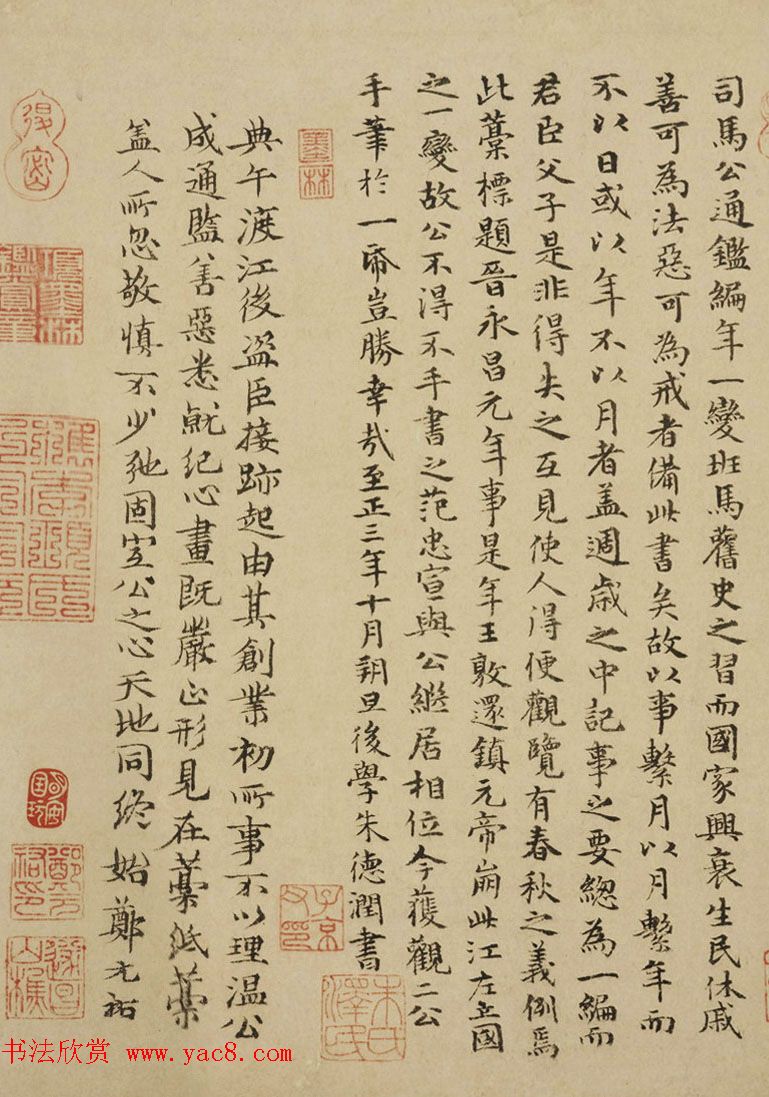 司馬公通鑑編年一變班馬舊史之習而國家興衰生民休戚
善可為法惡可為戒者備此書矣故以事繫月以月繫年而
不以日或以年不以月者盖週歲之中記事之要總為一編而
君臣父子是非得失之互見使人得便觀覽有春秋之義例焉
此藁標題晉永昌元年事是年王敦還鎮元帝崩此江左立國
之一變故公不得不手書之范忠宣與公繼居相位今獲觀二公
手筆於一帋豈勝幸哉至正三年十月朔旦後學朱德潤書
典午渡江後盗臣接跡起由其創業初所事不以理溫公
成通監善惡悉就紀心畫既嚴正形見在藁泜藁
盖人所忽敬慎不少弛固宜公之心天地同終始鄭元祐
墨林
子京父印
朱氏澤民
鄭元祐印
遂昌山樵
书法欣赏 www.yac8.com